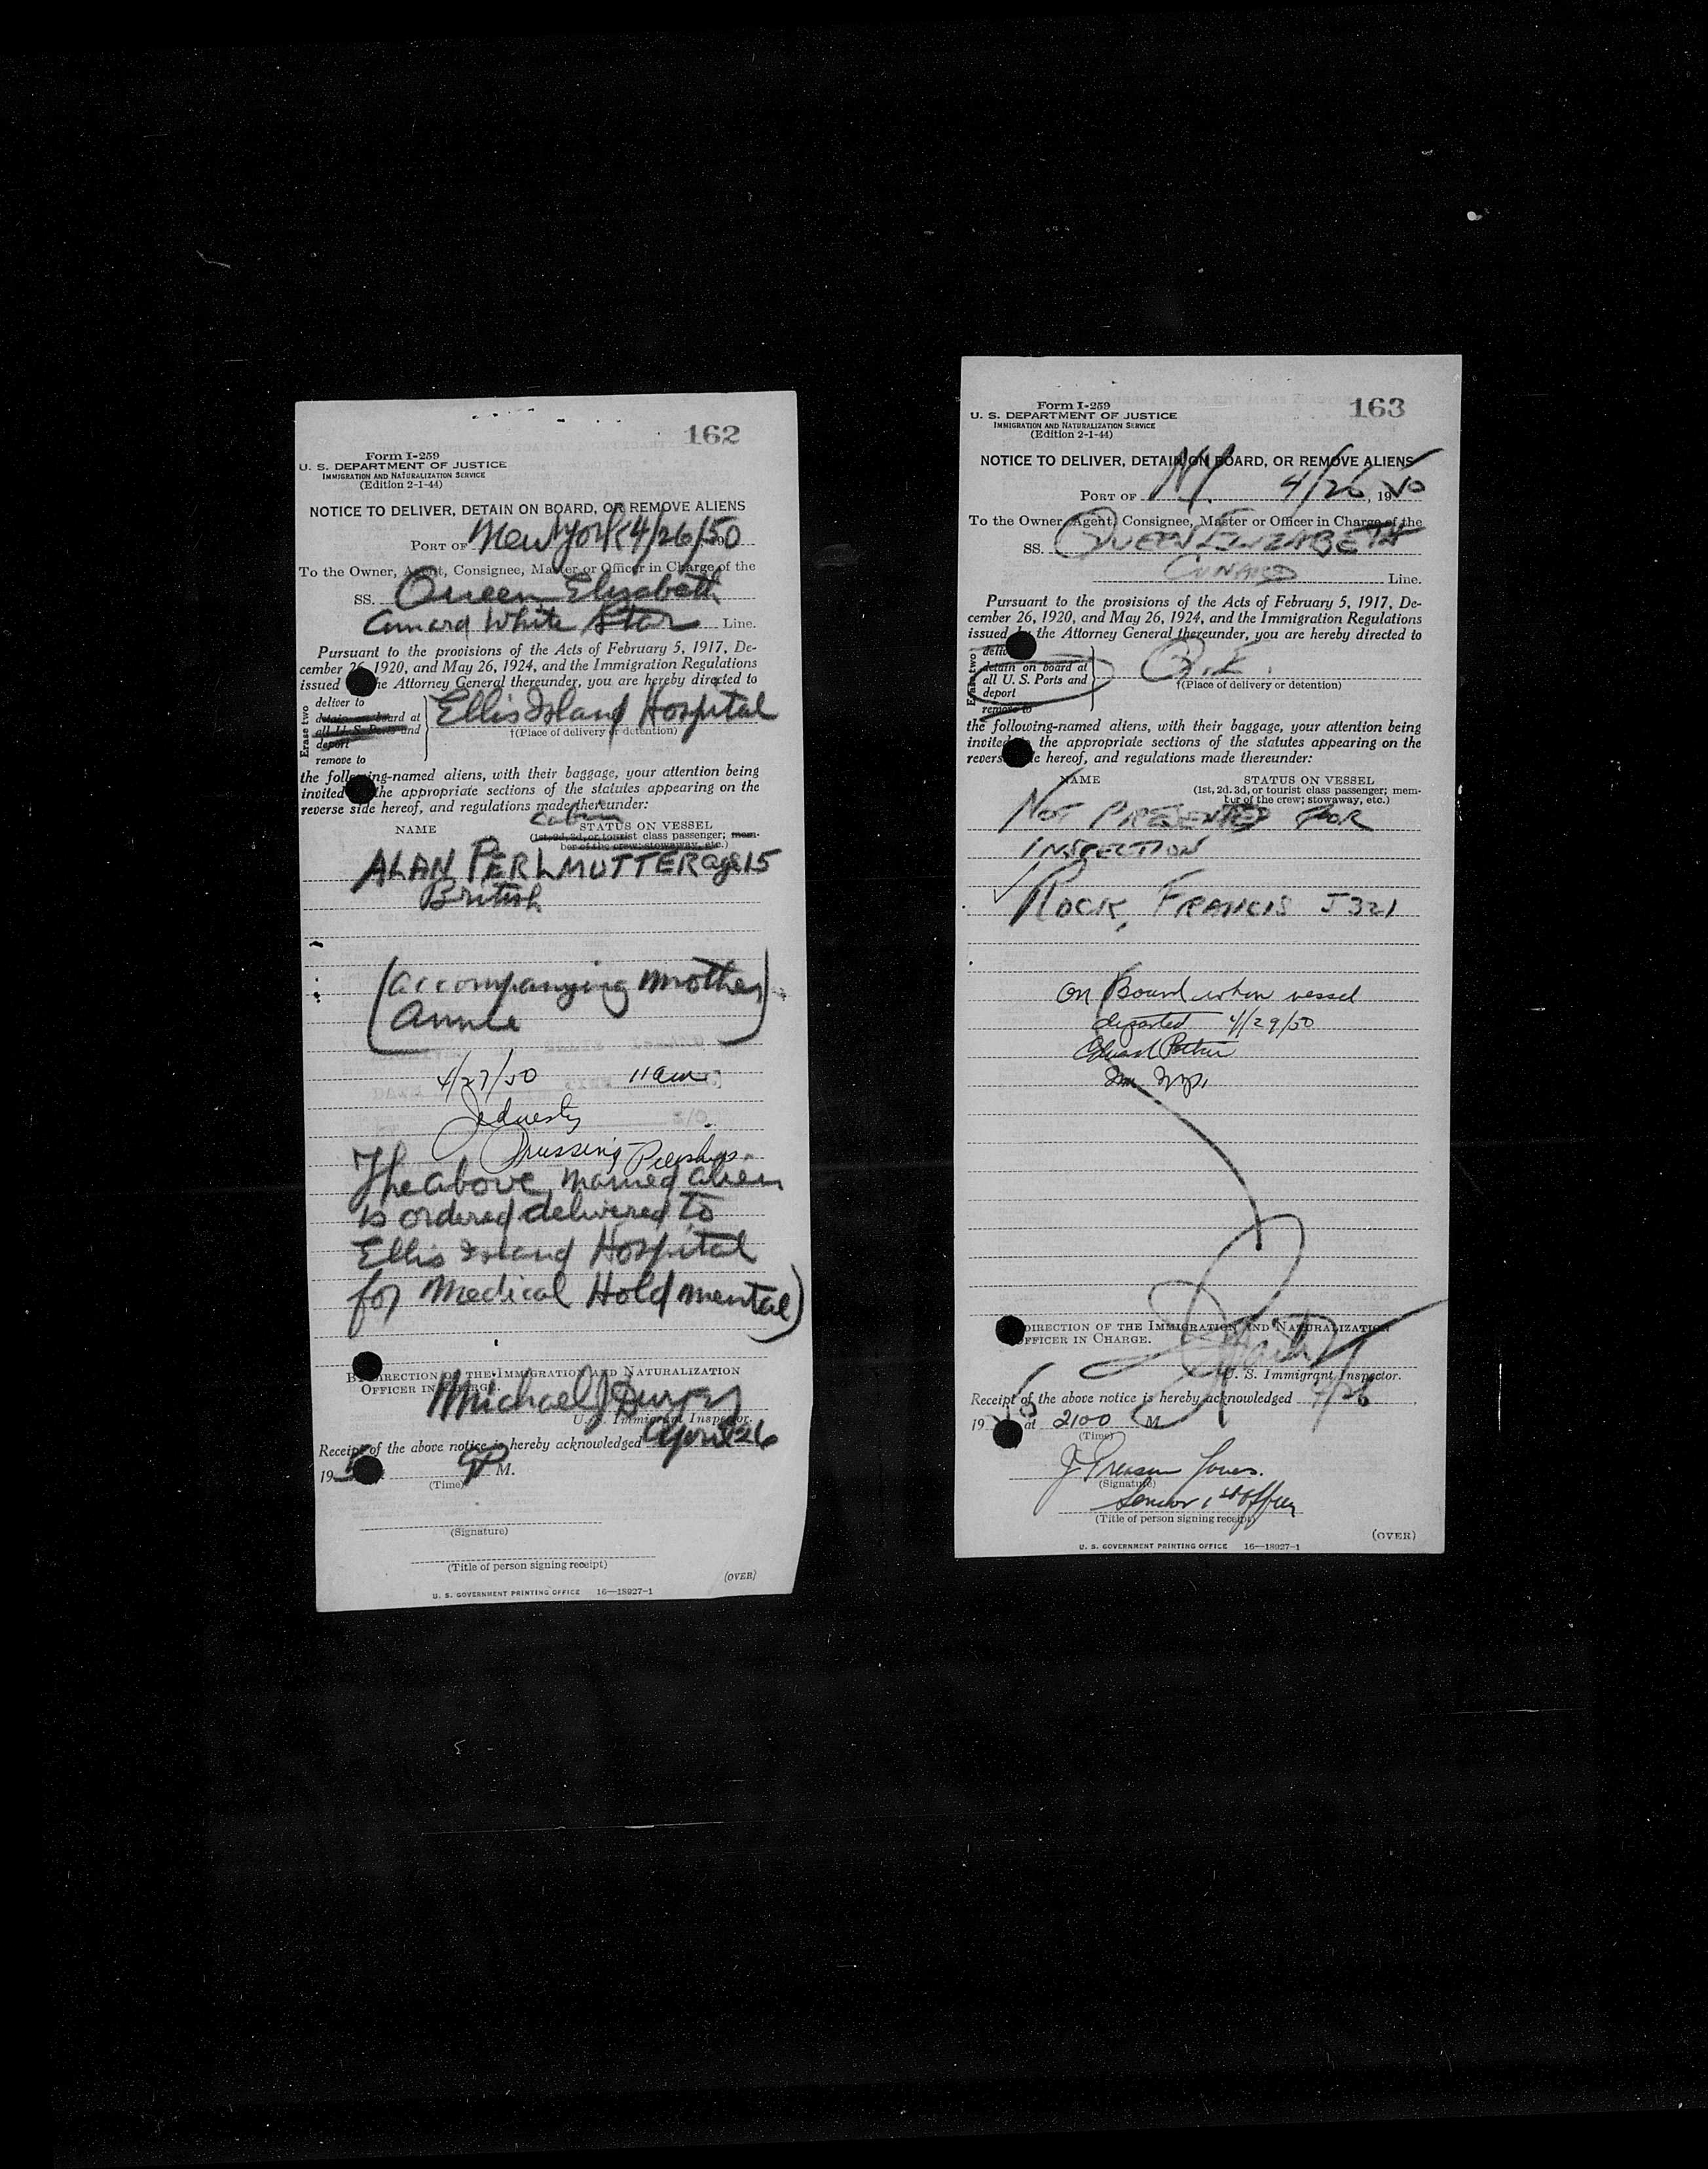 162
Form I-259
U. S. DEPARTMENT OF JUSTICE
IMMIGRATION AND NATURALIZATION SERVICE
(Edition 2-1-44)
NOTICE TO DELIVER, DETAIN ON BOARD, OR REMOVE ALIENS
PORT OF New York 4/26/50
To the Owner, Agent, Consignee, Master or Officer in Charge of the
SS. Queen Elizabeth
Cunard White Star Line.
Pursuant to the provisions of the Acts of February 5, 1917, De-
cember 26, 1920, and May 26, 1924, and the Immigration Regulations
issued the Attorney General thereunder, you are hereby directed to
Erase two
deliver to
detain on board at
all U. S. Ports and
deport
remove to
Ellis Island Hospital
†(Place of delivery or detention)
the following-named aliens, with their baggage, your attention being
invited the appropriate sections of the statutes appearing on the
reverse side hereof, and regulations made thereunder:
cabin
NAME STATUS ON VESSEL
(1st, 2d, 3d, or tourist class passenger; mem-
ber of the crew; stowaway, etc.)
ALAN PERLMUTTER age 15
British
(accompanying mother)
Annie
4/27/50 11 am
The above named alien
is ordered delivered to
Ellis Island Hospital
for Medical Hold mental)
BY DIRECTION OF THE IMMIGRATION AND NATURALIZATION
OFFICER IN CHARGE.
Michael J
U. S. Immigrant Inspector.
Receipt of the above notice is hereby acknowledged April 26
19 9 P M.
(Time)
(Signature)
(Title of person signing receipt)
(OVER)
U. S. GOVERNMENT PRINTING OFFICE 16—18927-1
163
Form I-259
U. S. DEPARTMENT OF JUSTICE
IMMIGRATION AND NATURALIZATION SERVICE
(Edition 2-1-44)
NOTICE TO DELIVER, DETAIN ON BOARD, OR REMOVE ALIENS
PORT OF NY 4/26, 1950
To the Owner, Agent, Consignee, Master or Officer in Charge of the
SS. QUEEN ELIZABETH
CUNARD Line.
Pursuant to the provisions of the Acts of February 5, 1917, De-
cember 26, 1920, and May 26, 1924, and the Immigration Regulations
issued by the Attorney General thereunder, you are hereby directed to
Erase two
deliver
detain on board at
all U. S. Ports and
deport
remove to
Q.E.
†(Place of delivery or detention)
the following-named aliens, with their baggage, your attention being
invited the appropriate sections of the statutes appearing on the
reverse hereof, and regulations made thereunder:
NAME STATUS ON VESSEL
(1st, 2d, 3d, or tourist class passenger; mem-
ber of the crew; stowaway, etc.)
NOT PRESENTED FOR
INSPECTION
✓ ROCK, FRANCIS J 321
On Board when vessel
departed 4/29/50
DIRECTION OF THE IMMIGRATION AND NATURALIZATION
OFFICER IN CHARGE.
U. S. Immigrant Inspector.
Receipt of the above notice is hereby acknowledged 4/26,
1950 at 2100 M.
(Time)
J Jones.
(Signature)
Senior 1st Officer
(Title of person signing receipt)
(OVER)
U. S. GOVERNMENT PRINTING OFFICE 16—18927-1